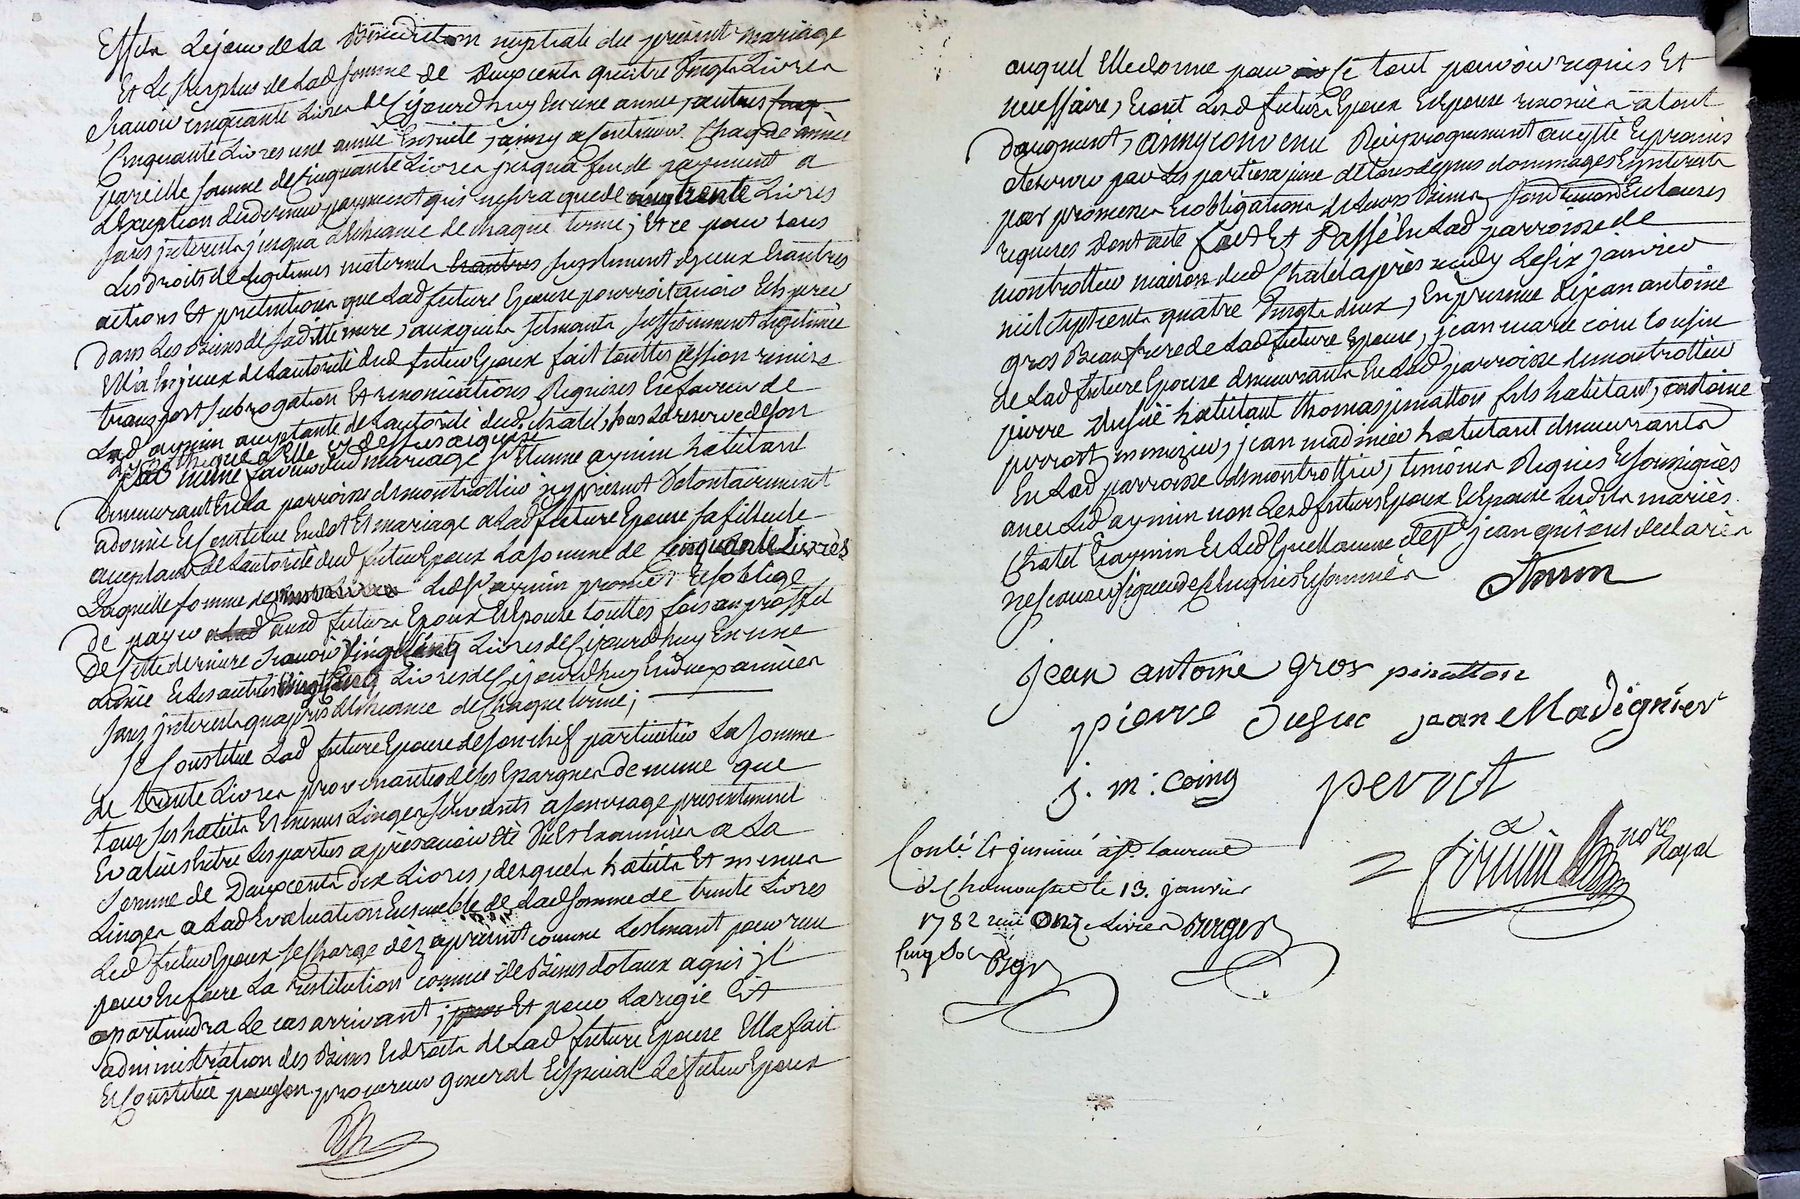 Effets Le jour de La Benediction nuptiale du present mariage
Et Le surplus de Lad somme de Deux cents quatre Vingts Livres
scavoir cinquante Livres de Cejourdhuy En une année, autres
Cinquante Livres une année Ensuite, ainsy a Continuer Chaque année
pareille somme de Cinquante Livres jusqua fin de payement a
Lexception du dernier payement qui ne sera que de trente Livres
sans interets jusqua Lecheance de chaque terme; Et ce pour tous
Les droits de Legitimes maternels Et autres suplement diceux Et autres
actions Et pretentions que Lad future Epouse pourroit avoir Et esperer
Dans Les Biens de sa ditte mere, auxquels
Elle En jceux de Lautorité dud futur Epoux fait touttes cession remise
transport subrogation Et renonciations Requises En faveur de
Lad aymin acceptante de Lautorité dud Chatel, sous La reserve de son
hypotheque a Elle cy dessus acquise
Et En meme faveur dud mariage sr Etienne aymin habitant
demeurant En La parroisse de montrottier cy present Volontairement
a donné Et Constitué En dot Et mariage a Lad future Epouse sa filleule
acceptant de Lautorité dud futur Epoux La somme de Cinquante Livres
Laquelle somme Led sr aymin promet Et soblige
De payer a Lad aud futurs Epoux Et Epouse touttes fois au proffit
De Cette derniere scavoir Vingt Cinq Livres de Cejourdhuy En une
année Et Les autres Vingt Cinq Livres de Cejourdhuy En deux années
sans interets qu'après Lecheance de Chaque terme;
Se Constitue Lad future Epouse de son chef particulier La somme
de trente Livres provenantes de ses Epargnes De meme que
tous ses habits Et menus Linges servants a son usage presentement
Evalués Entre Les parties apres avoir été Vus Et Examinés a La
somme de Deux cents dix Livres, desquels habits Et menus
Linges a Lad Evaluation Ensemble de Lad somme de trente Livres
Led futur Epoux se charge dèz apresent comme Les tenant pour reçu
pour En faire La restitution comme de Biens dotaux a qui jl
apartiendra Le cas arrivant; pour Et pour La regie Et
administration des Biens Et droits de Lad future Epouse Elle fait
Et Constitue pour son procureur general Et special Led futur Epoux
auquel Elle donne pour ce tout pouvoir requis Et
necessaire, Etant Lesd futurs Epoux Et Epouse renoncés a tout
Daugment, ainsy convenu Reciproquement accepté Et promis
observer par Les parties a peine de tous depens dommages Et interets
par promesses Et obligations de Leurs Biens Et clauses
requises Dont acte fait Et Passé En Lad parroisse de
montrottier maison dud Chatel après midy Le six janvier
mil sept cents quatre Vingts deux, En presence de jean antoine
gros Beau frere de Lad future Epouse, jean marie coin cousin
de Lad future Epouse demeurants En Lad parroisse de montrottier
pierre Dusuc habitant thomas pinatton fils habitant, antoine
perrot menuizier, jean madinier habitant demeurants
En Lad parroisse de montrottier, temoins Requis Et soussignés
avec Led aymin non Lesd futurs Epoux Et Epouse Lesdits mariés
Chatel Et aymin Et Led Guillaume jean qui ont declarés
ne scavoir signer de ce Enquis Et sommés
jean antoine gros pinatton
pierre Dusuc jean Madignier
j. m: coing perrot
Conlé. Et jnsinué à st. Laurent
de Chamousset le 13. janvier
1782 recu onze Livres
Cinq Sols
nore Royal